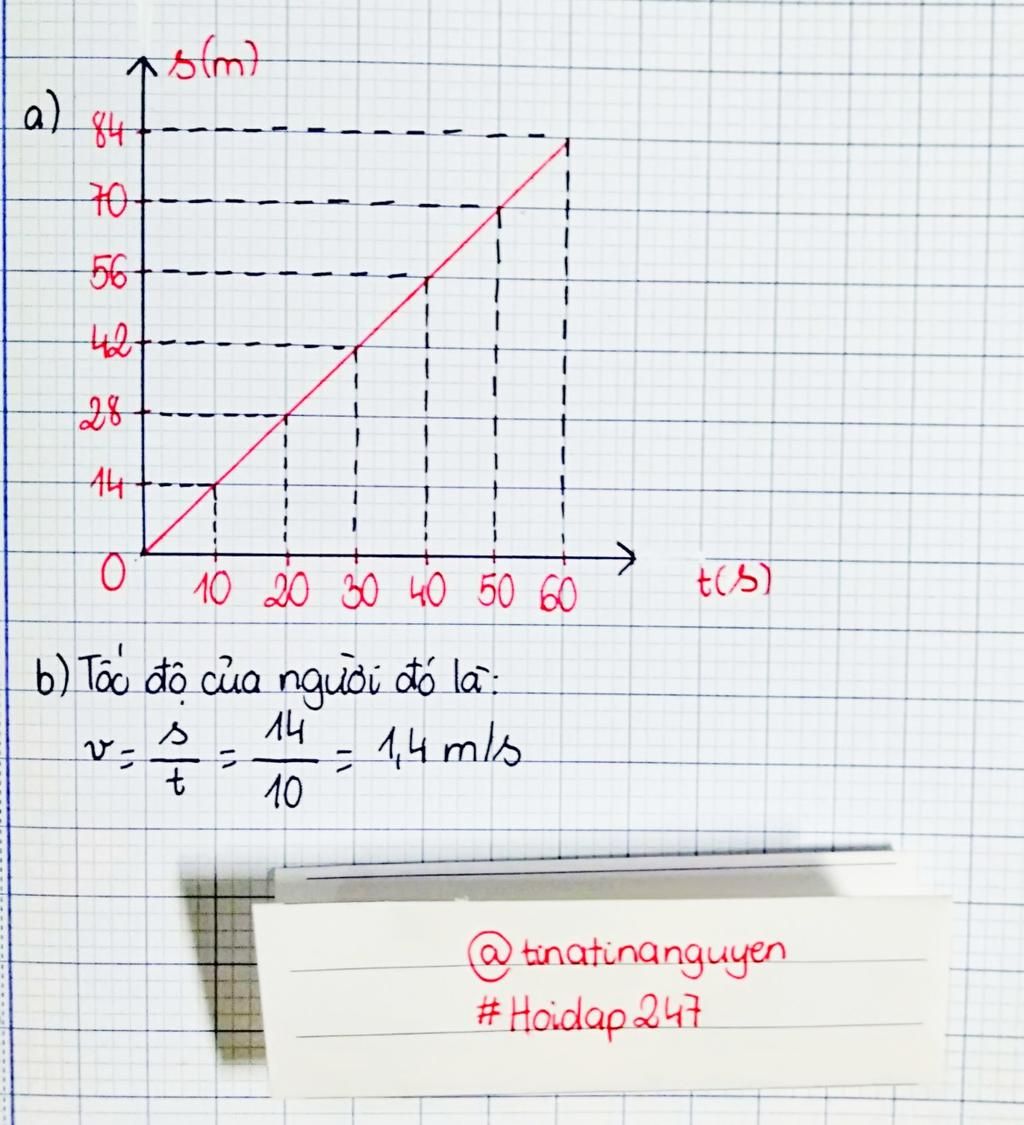 s(m)
a)
84
70
56
42
28
14
0
10 20 30 40 50 60 t(s)
b) Tốc độ của người đó là:
v = s/t = 14/10 = 1,4 m/s
@tinatinanguyen
#Hoidap247